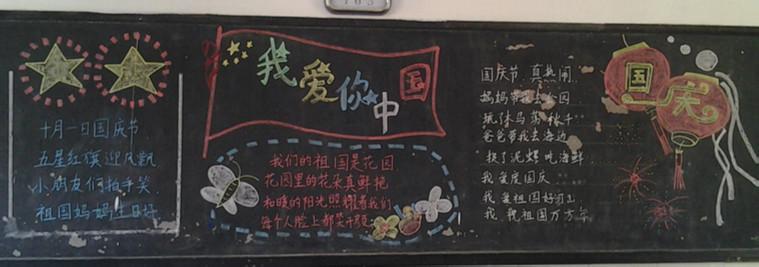 703
十月一日国庆节
五星红旗迎风飘
小朋友们拍手笑
祖国妈妈生日好
我爱你中国
我们的祖国是花园
花园里的花朵真鲜艳
和暖的阳光照耀着我们
每个人脸上都笑开颜
国庆节 真热闹
妈妈带我去公园
玩了木马荡秋千
爸爸带我去海边
捉了泥螺吃海鲜
我爱祖国好河山
我祝祖国万万年
国庆